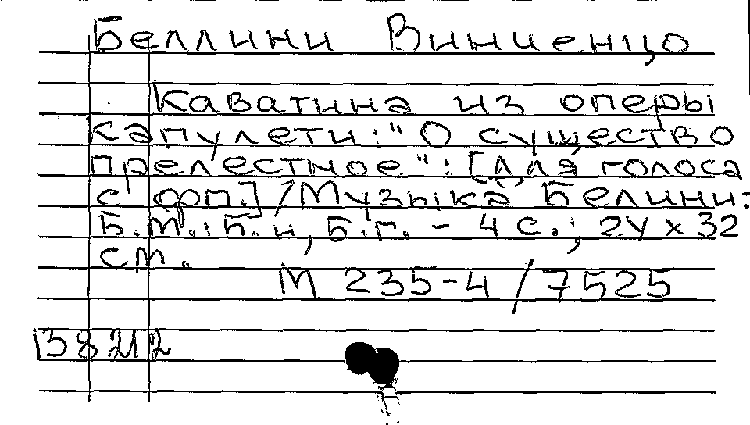 Беллини Винценцо
Каватина из оперы
Капулети: "О существо
прелестное": [Для голоса
с фп.] / Музыка Белини:
Б.м.: Б.и, Б.г. - 4 с.; 24 х 32
см.
М 235-4 / 7525
38212